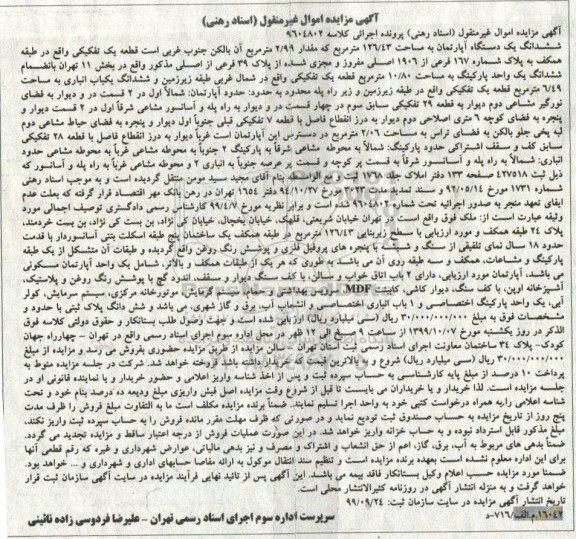 آگهی مزایده اموال غیرمنقول (اسناد رهنی)
آگهی مزایده اموال غیرمنقول (اسناد رهنی) پرونده اجرائی کلاسه ۹۶۰۴۸۰۲
ششدانگ یک دستگاه آپارتمان به مساحت ۱۲۶/۴۳ مترمربع که مقدار ۲/۹۹ مترمربع آن بالکن جنوب غربی است قطعه یک تفکیکی واقع در طبقه
همکف به پلاک شماره ۱۶۷ فرعی از ۱۹۰۶ اصلی مفروز و مجزی شده از پلاک ۳۹ فرعی از اصلی مذکور واقع در بخش ۱۱ تهران بانضمام
ششدانگ یک واحد پارکینگ به مساحت ۱۰/۸۰ مترمربع قطعه یک تفکیکی واقع در شمال غربی طبقه زیرزمین و ششدانگ یکباب انباری به مساحت
۶/۴۹ مترمربع قطعه یک تفکیکی واقع در طبقه زیرزمین و زیر راه پله محدود به حدود: حدود آپارتمان: شمالاً اول در ۲ قسمت در و دیوار به فضای
نورگیر مشاعی دوم دیوار به قطعه ۲۹ تفکیکی سابق سوم در چهار قسمت در و دیوار به راه پله و آسانسور مشاعی شرقاً اول در ۲ قسمت دیوار و
پنجره به فضای کوچه ۶ متری اصلاحی دوم دیوار به درز انقطاع فاصل با قطعه ۷ تفکیکی قبلی جنوباً اول دیوار و پنجره به فضای حیاط مشاعی دوم
لبه پخی جلو بالکن به فضای تراس به مساحت ۲/۰۶ مترمربع در دسترس این آپارتمان است غرباً دیوار به درز انقطاع فاصل با قطعه ۲۸ تفکیکی
سابق کف و سقف اشتراکی حدود پارکینگ: شمالاً به محوطه مشاعی شرقاً به پارکینگ ۲ جنوباً به محوطه مشاعی غرباً به محوطه مشاعی حدود
انباری: شمالاً به راه پله و آسانسور شرقاً به قسمت پر کوچه و قسمت پر عرصه جنوباً به انباری ۲ و محوطه مشاعی غرباً به راه پله و آسانسور که
ذیل ثبت ۴۲۷۵۱۸ صفحه ۱۳۳ دفتر املاک جلد ۱۷۷۸ بنام ابوالفضل بنام آقای مجید سید مومن منتقل گردیده است و به موجب اسناد رهنی
شماره ۱۷۳۱ مورخ ۹۲/۰۵/۱۴ و سند تمدید مدت ۲۰۲۳ مورخ ۹۴/۱۰/۲۷ دفتر ۱۶۵۴ تهران در رهن بانک مهر اقتصاد قرار گرفته که بعلت عدم
ایفای تعهد منجر به صدور اجرائیه تحت شماره ۹۶۰۴۸۰۲ شده است و برابر نظریه مورخ ۹۹/۴/۷ کارشناس رسمی دادگستری توصیف اجمالی مورد
وثیقه عبارت است از: ملک فوق واقع است در تهران خیابان شریعتی، قلهک، خیابان یخچال، خیابان کی نژاد، بن بست کی نژاد، بن بست خردمند،
پلاک ۲۴ طبقه همکف و مورد ارزیابی با سطح زیربنایی ۱۲۶/۴۳ مترمربع در طبقه همکف یک ساختمان پنج طبقه اسکلت بتنی آسانسوردار با قدمت
حدود ۱۸ سال نمای تلفیقی از سنگ و شیشه با پنجره های پروفیل فلزی و پوشش رنگ روغن واقع گردیده و طبقات آن متشکل از یک طبقه
پارکینگ و مشاعات، همکف و سه طبقه روی آن می باشد به طوری که هر یک از طبقات همکف و بالاتر شامل یک واحد آپارتمان مسکونی
می باشد، آپارتمان مورد ارزیابی، دارای ۲ باب اتاق خواب و سالن، با کف سنگ دیوار و سقف، اندود گچ با پوشش رنگ روغن و پلاستیک،
آشپزخانه اوپن، با کف سنگ، دیوار کاشی، کابینت MDF، سرویس بهداشتی و حمام، سیستم گرمایش، موتورخانه مرکزی، سیستم سرمایش، کولر
آبی، یک واحد پارکینگ اختصاصی و ۱ باب انباری اختصاصی و انشعاب آب، برق و گاز شهری، می باشد و شش دانگ پلاک ثبتی با حدود و
مشخصات فوق به مبلغ ۳۰/۰۰۰/۰۰۰/۰۰۰ ریال (سی میلیارد ریال) ارزیابی شده است و جهت وصول طلب بستانکار و حقوق دولتی کلاسه فوق
الذکر در روز یکشنبه مورخ ۱۳۹۹/۱۰/۰۷ از ساعت ۹ صبح الی ۱۲ ظهر در محل اداره سوم اجرای اسناد رسمی واقع در تهران - چهارراه جهان
کودک- پلاک ۳۴ ساختمان معاونت اجرای اسناد رسمی ثبت استان تهران - سالن مزایده از طریق مزایده حضوری بفروش می رسد و مزایده از مبلغ
۳۰/۰۰۰/۰۰۰/۰۰۰ ریال (سی میلیارد ریال) شروع و به بالاترین قیمت که خریدار داشته باشد فروخته خواهد شد. شرکت در جلسه مزایده منوط به
پرداخت ۱۰ درصد از مبلغ پایه کارشناسی به حساب سپرده ثبت و پس از اخذ شناسه واریز اعلامی و حضور خریدار و یا نماینده قانونی او در
جلسه مزایده است. لذا خریدار و یا خریداران می بایست تا قبل از شروع وقت مزایده اصل فیش واریزی مبلغ ودیعه ده درصد بنام خود و تحت
شناسه اعلامی را،به همراه درخواست کتبی خود به واحد اجرا تسلیم نمایند. ضمناً برنده مزایده مکلف است ما به التفاوت مبلغ فروش را ظرف مدت
پنج روز از تاریخ مزایده به حساب صندوق ثبت تودیع نماید و در صورتی که ظرف مهلت مقرر مانده فروش را به حساب سپرده ثبت واریز نکند،
مبلغ مذکور قابل استرداد نبوده و به حساب خزانه واریز خواهد شد. در این صورت عملیات فروش از درجه اعتبار ساقط و مزایده تجدید می گردد.
ضمناً بدهی های مربوط به آب، برق، گاز، اعم از حق انشعاب و اشتراک و مصرف و نیز بدهی مالیاتی، عوارض شهرداری و غیره که رقم قطعی آنها
برای این اداره معلوم نشده است بعهده برنده مزایده است و تنظیم سند انتقال موکول به ارائه مفاصا حسابهای اداری و شهرداری و ... خواهد بود.
ضمناً مورد مزایده حسب اعلام وکیل بستانکار فاقد بیمه می باشد. این آگهی پس از تائید نهایی فرآیند مزایده در سایت آگهی سازمان ثبت قرار
خواهد گرفت و به منزله انتشار آگهی در روزنامه کثیرالانتشار محلی است.
تاریخ انتشار آگهی مزایده در سایت سازمان ثبت: ۹۹/۰۹/۲۴
۱۶۰۴۲.م الف/۷۱۶-د
سرپرست اداره سوم اجرای اسناد رسمی تهران - علیرضا فردوسی زاده نائینی